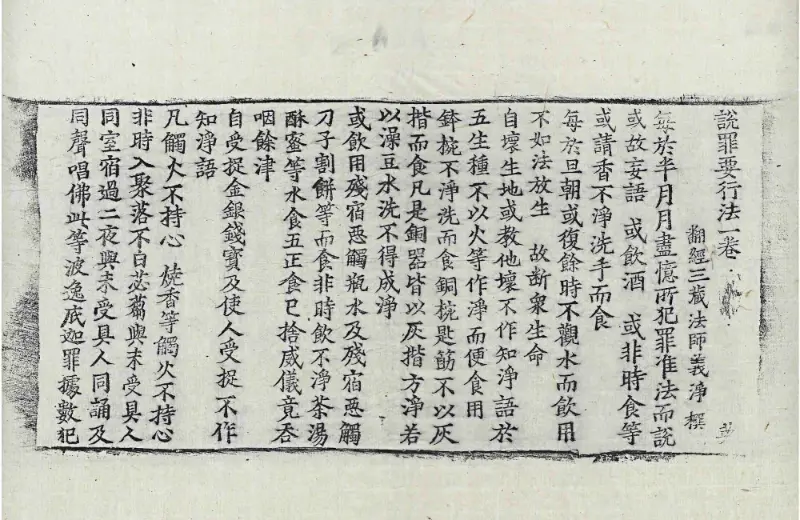 說罪要行法一卷
翻經三藏法師義淨撰
每於半月月盡憶所犯罪准法而說
或故妄語 或飲酒 或非時食等
或請香不淨洗手而食
每於旦朝或復餘時不觀水而飲用
不如法放生 故斷衆生命
自壞生地或教他壞不作知淨語於
五生種不以火等作淨而便食用
鉢椀不淨洗而食銅椀匙筯不以灰
揩而食凡是銅器皆以灰揩方淨若
以澡豆水洗不得成淨
或飲用殘宿惡觸瓶水及殘宿惡觸
刀子割餅等而食非時飲不淨茶湯
酥蜜等水食五正食已捨威儀竟吞
咽餘津
自受捉金銀錢寶及使人受捉不作
知淨語
凡觸火不持心 燒香等觸火不持心
非時入聚落不白苾蒭與未受具人
同室宿過二夜與未受具人同誦及
同聲唱佛此等波逸底迦罪據數犯